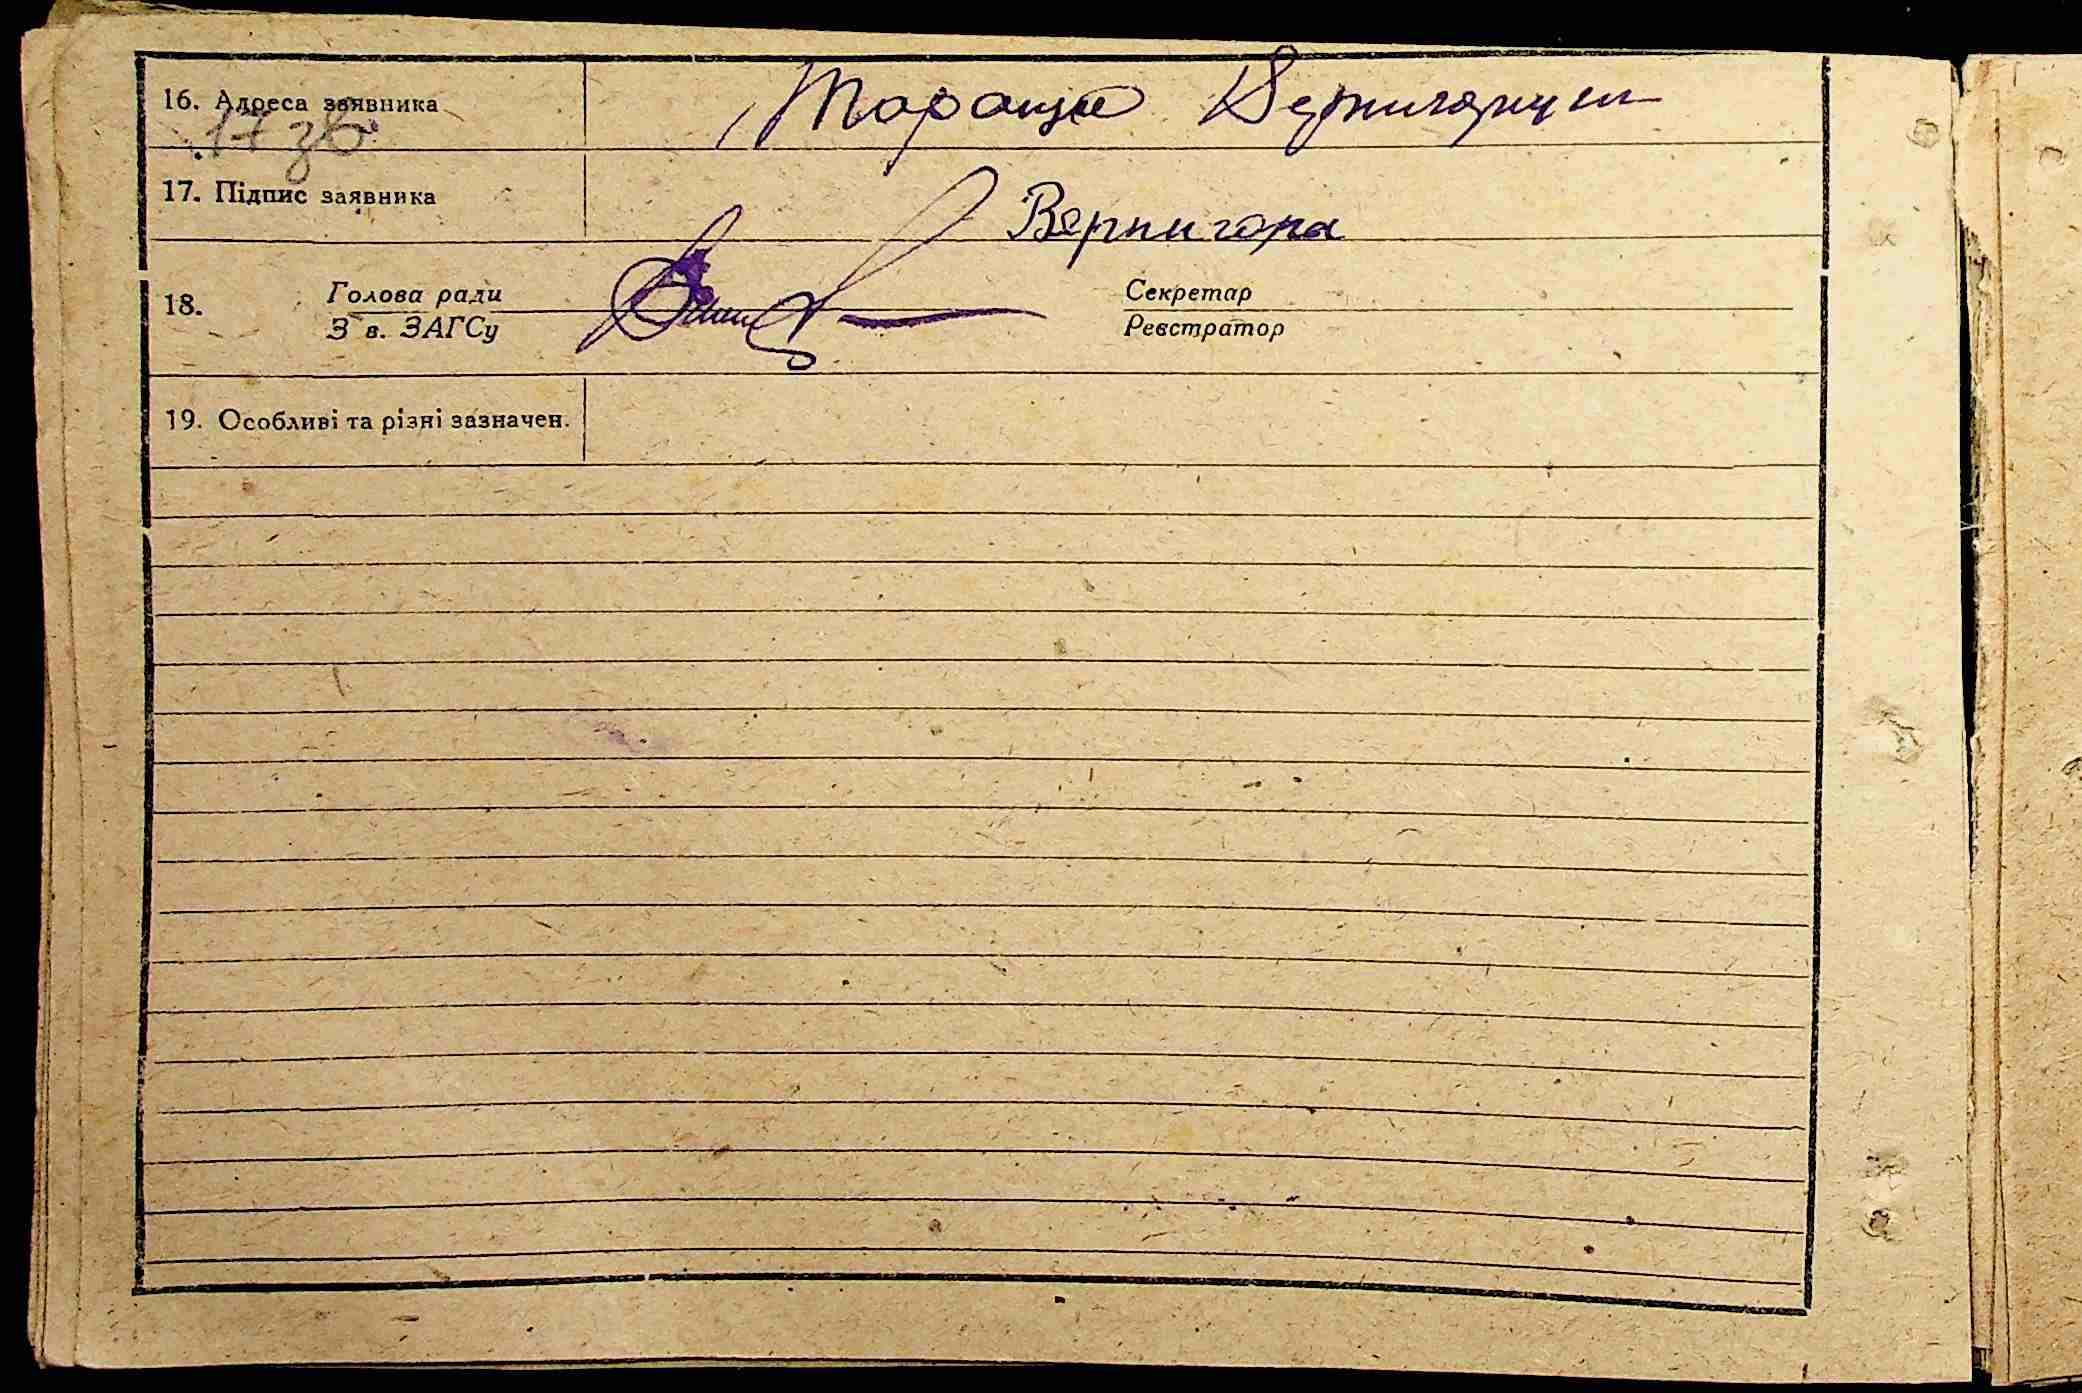 16. Адреса заявника Тараща
17 зв.
17. Підпис заявника Вернигора
18. Голова ради Секретар
З в. ЗАГСу Реєстратор
19. Особливі та різні зазначен.